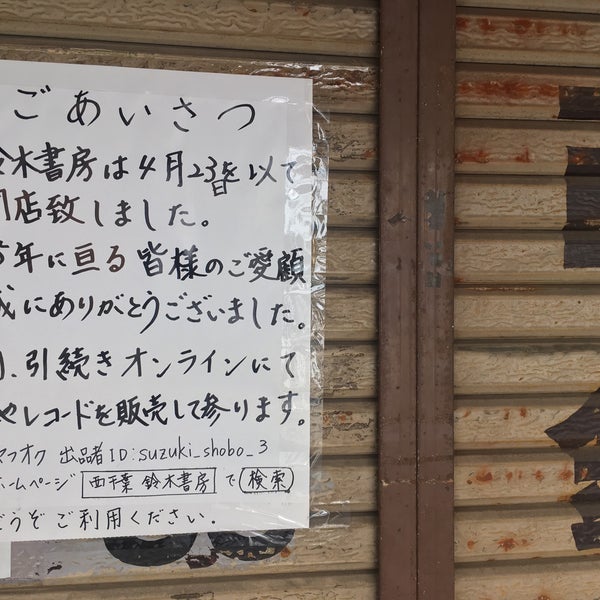 ごあいさつ
鈴木書房は4月23日(日)以て
閉店致しました。
年に亘る皆様のご愛顧
誠にありがとうございました。
引続きオンラインにて
やレコードを販売して参ります。
ヤフオク 出品者ID:suzuki_shobo_3
ホームページ 西千葉 鈴木書房 で 検索
どうぞご利用ください。